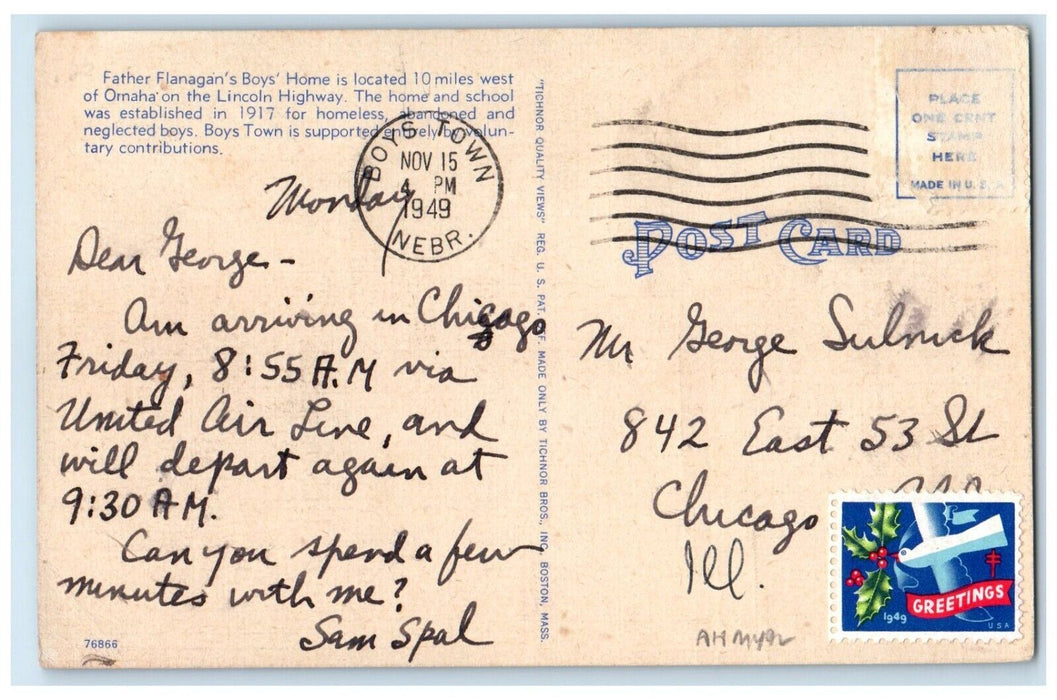 Father Flanagan's Boys' Home is located 10 miles west
of Omaha on the Lincoln Highway. The home and school
was established in 1917 for homeless, abandoned and
neglected boys. Boys Town is supported entirely by volun-
tary contributions.
Monday
Dear George -
Am arriving in Chicago
Friday, 8:55 A.M via
United Air Line, and
will depart again at
9:30 A.M.
Can you spend a few
minutes with me?
Sam Spal
76866
BOYS TOWN
NOV 15
4 PM
1949
NEBR.
"TICHNOR QUALITY VIEWS" REG. U. S. PAT. OFF. MADE ONLY BY TICHNOR BROS., INC. BOSTON, MASS.
PLACE
ONE CENT
STAMP
HERE
MADE IN U. S. A
POST CARD
Mr George Sulnick
842 East 53 St
Chicago
Ill.
1949
GREETINGS
USA